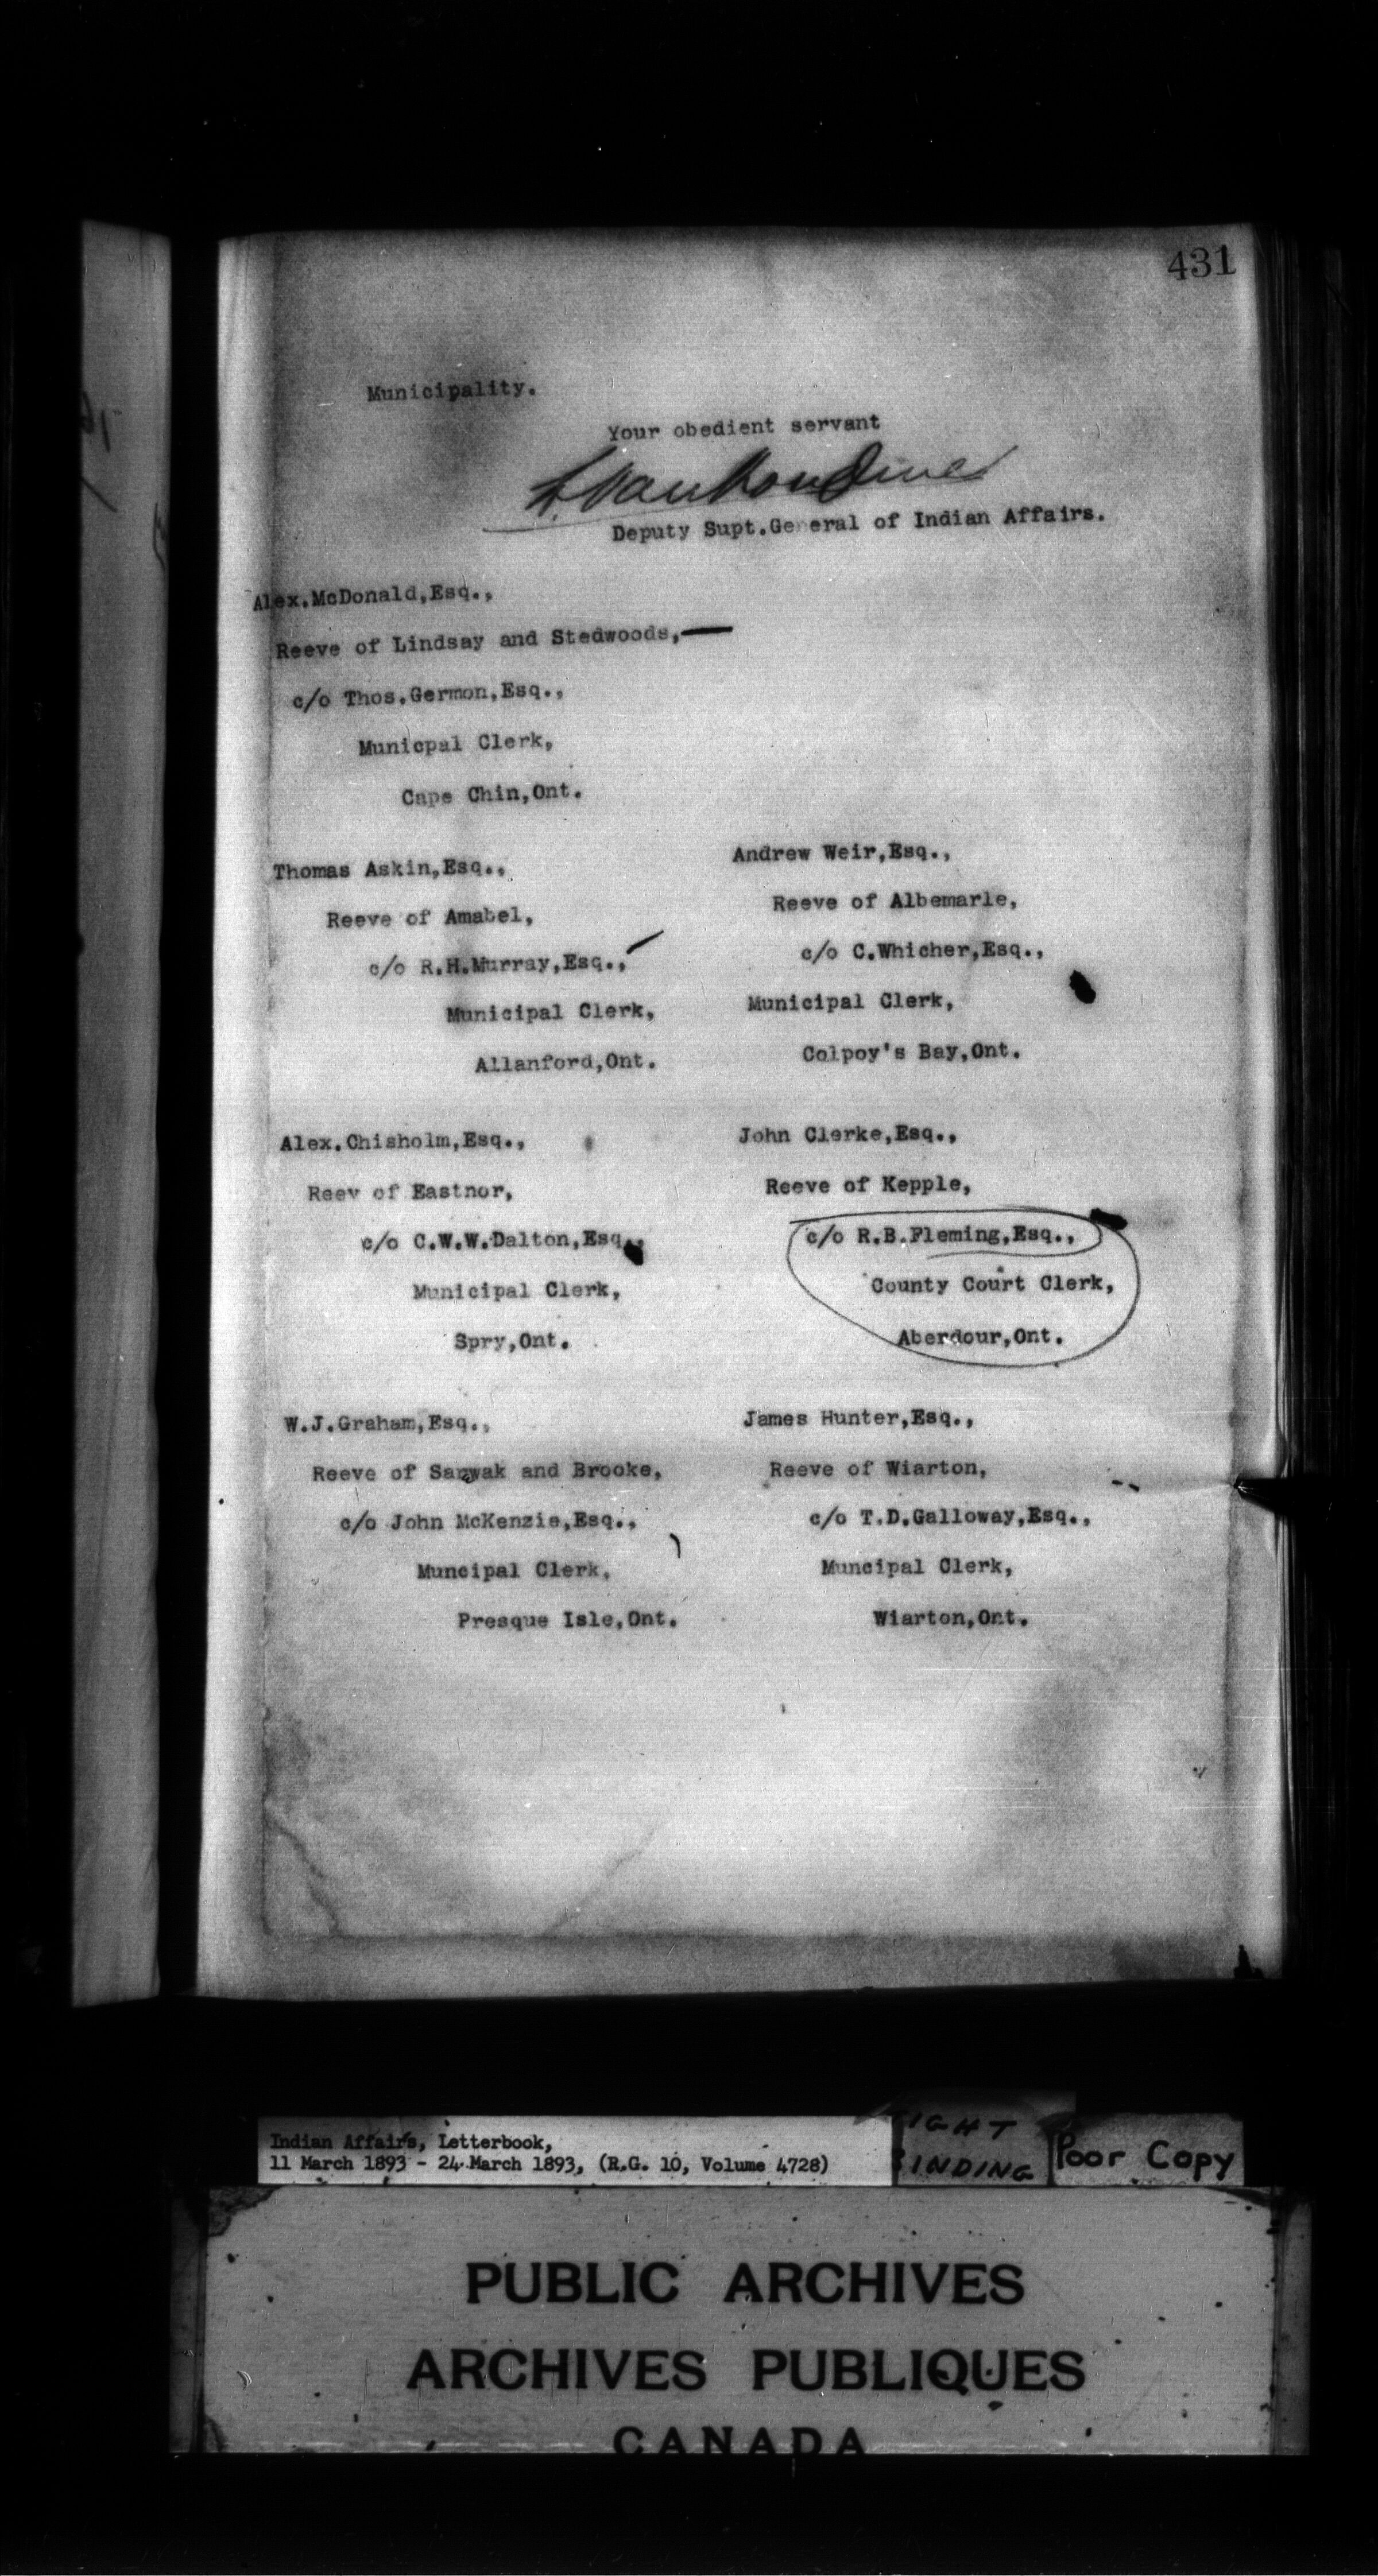 431
Municipality.
Your obedient servant
L. Vankoughnet
Deputy Supt.General of Indian Affairs.
Alex.McDonald,Esq.,
Reeve of Lindsay and Stedwoods,
c/o Thos.Germon,Esq.,
Municpal Clerk,
Cape Chin,Ont.
Thomas Askin,Esq.,
Reeve of Amabel,
c/o R.H.Murray,Esq.,
Municipal Clerk,
Allanford,Ont.
Andrew Weir,Esq.,
Reeve of Albemarle,
c/o C.Whicher,Esq.,
Municipal Clerk,
Colpoy's Bay,Ont.
Alex.Chisholm,Esq.,
Reev of Eastnor,
c/o C.W.W.Dalton,Esq.,
Municipal Clerk,
Spry,Ont.
John Clerke,Esq.,
Reeve of Kepple,
c/o R.B.Fleming,Esq.,
County Court Clerk,
Aberdour,Ont.
W.J.Graham,Esq.,
Reeve of Sarwak and Brooke,
c/o John McKenzie,Esq.,
Muncipal Clerk,
Presque Isle,Ont.
James Hunter,Esq.,
Reeve of Wiarton,
c/o T.D.Galloway,Esq.,
Muncipal Clerk,
Wiarton,Ont.
Indian Affairs, Letterbook,
11 March 1893 - 24 March 1893, (R.G. 10, Volume 4728)
BINDING
Poor Copy
PUBLIC ARCHIVES
ARCHIVES PUBLIQUES
CANADA